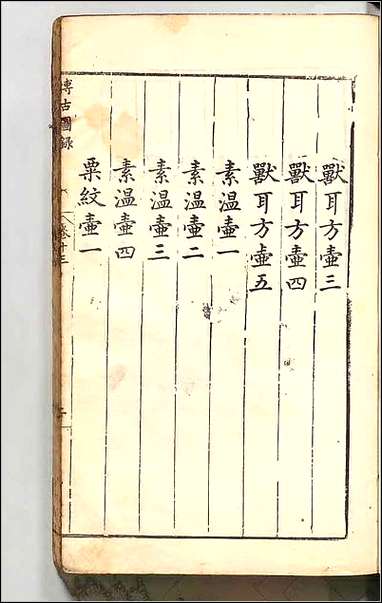 獸耳方壺三
獸耳方壺四
獸耳方壺五
素温壺一
素温壺二
素温壺三
素温壺四
粟紋壺一
博古圖録
卷十三